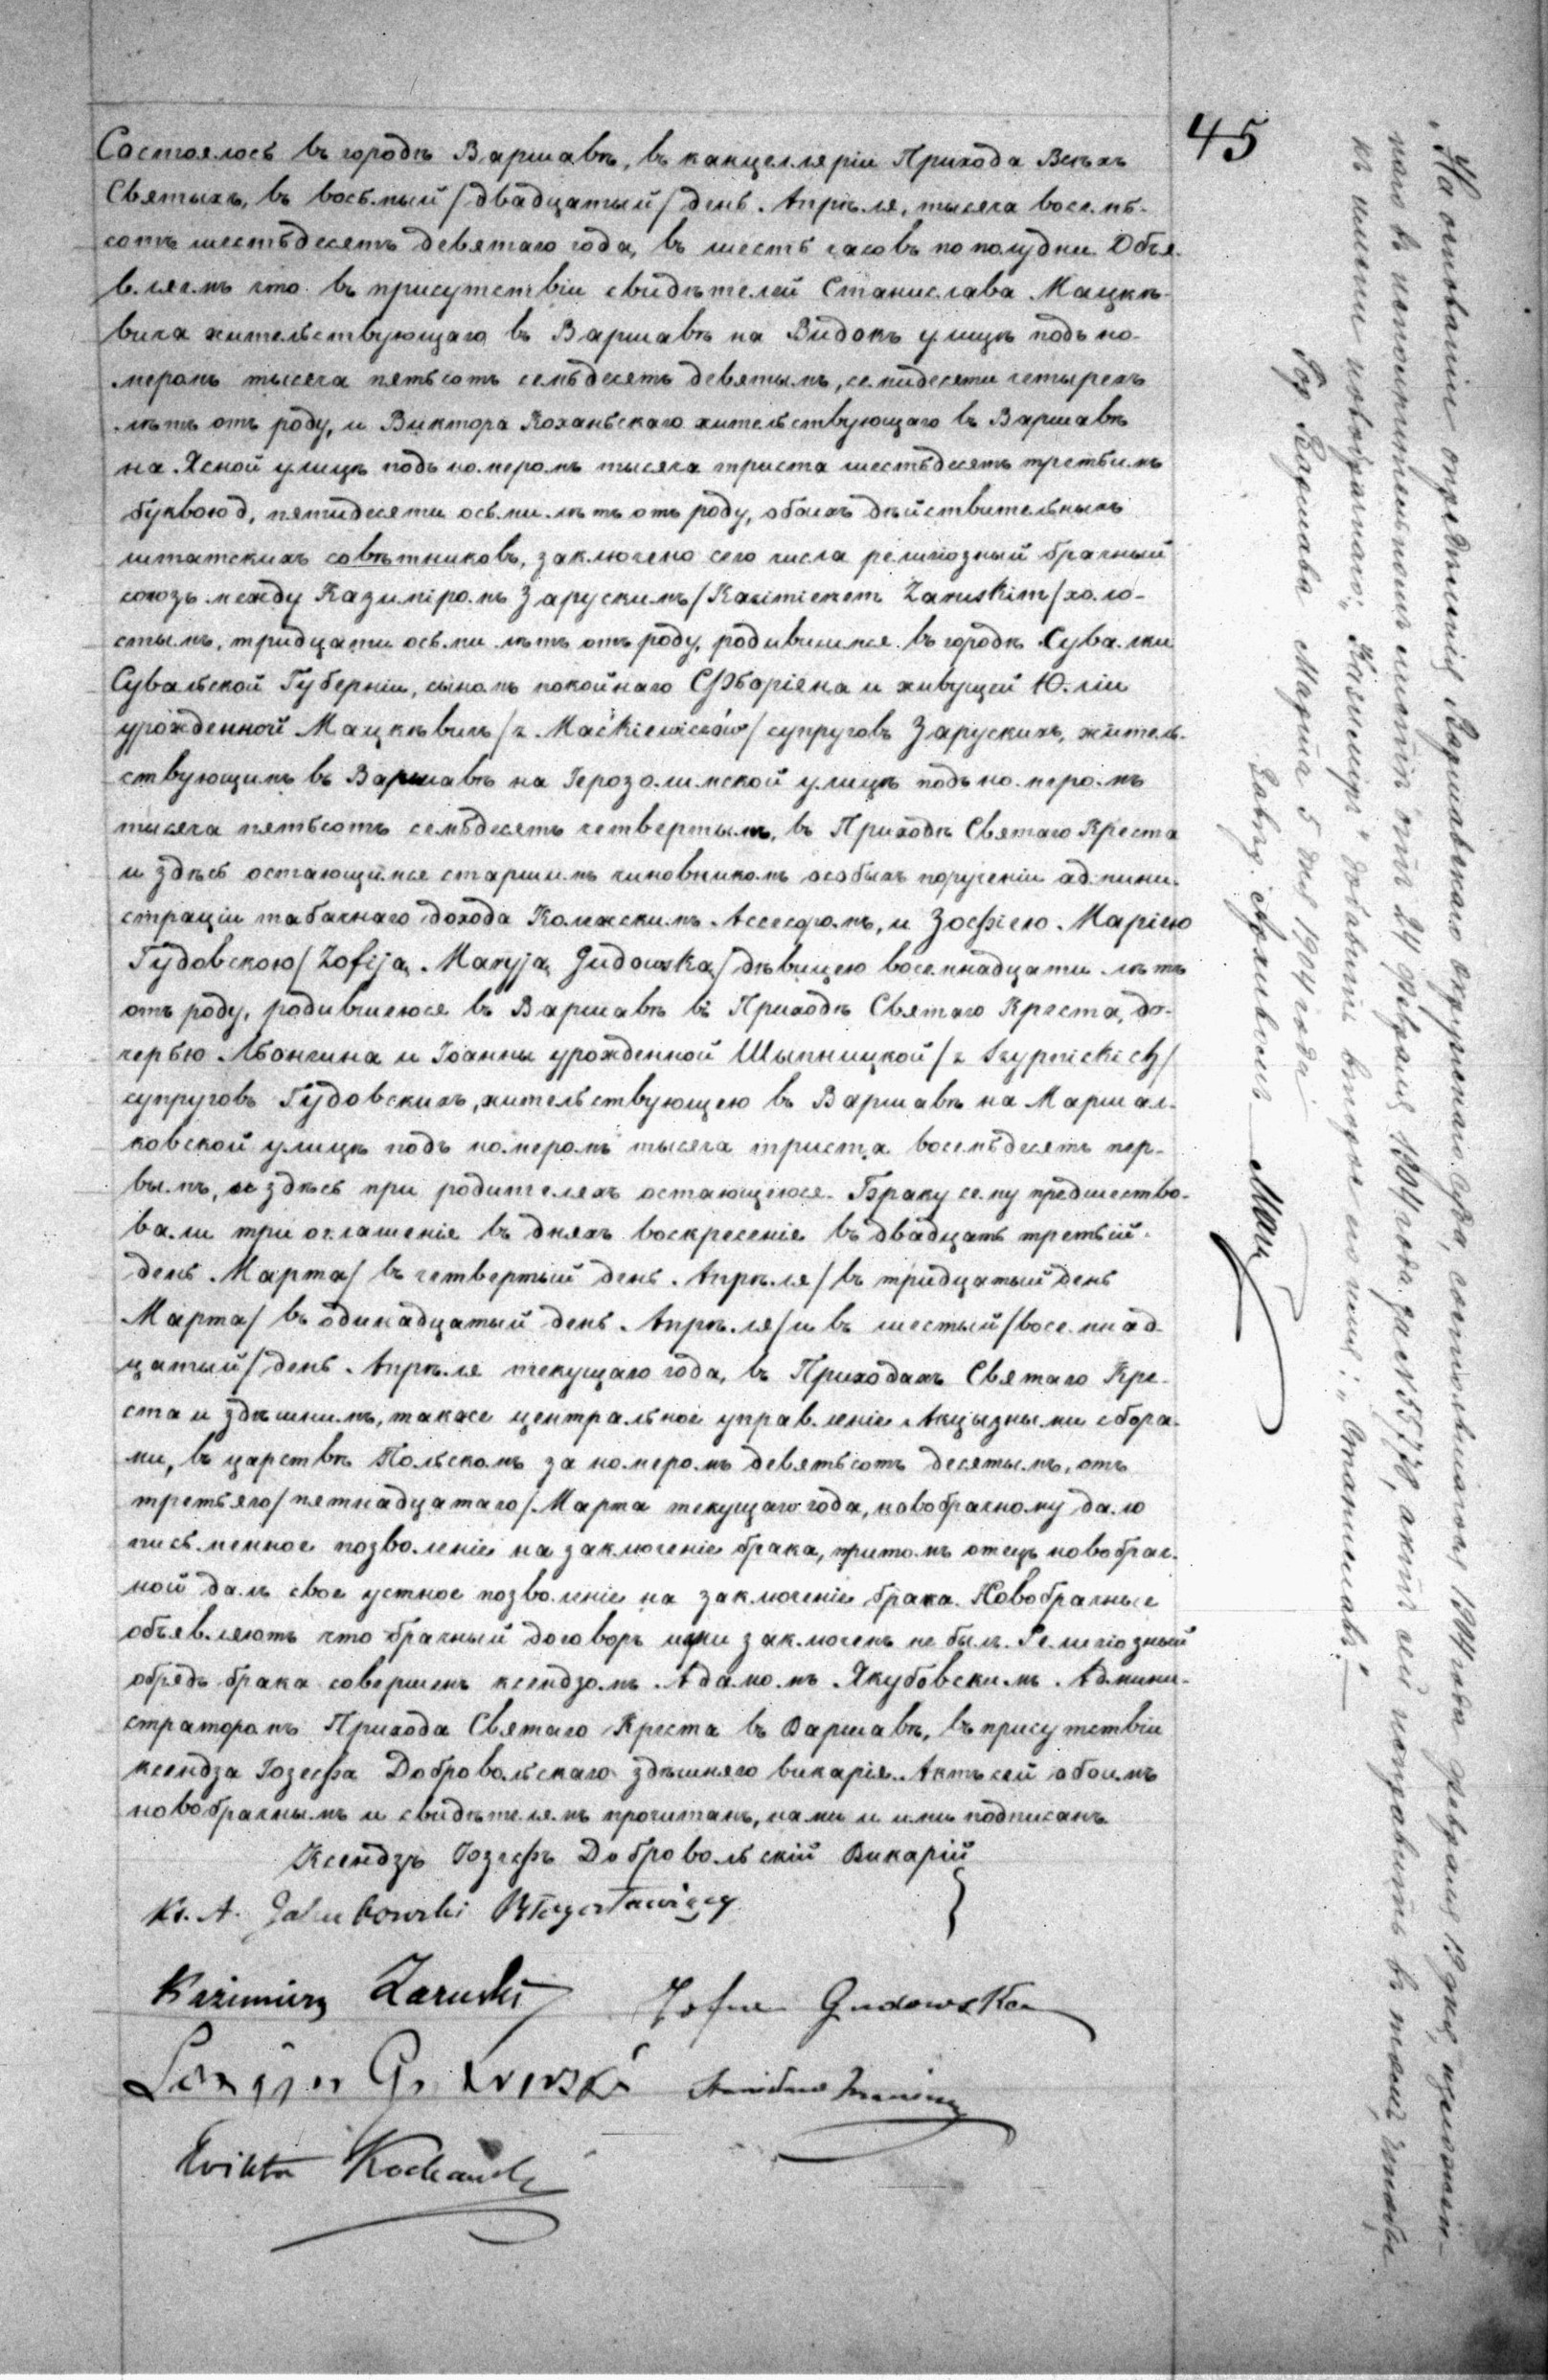 45
Состоялось въ городѣ Варшавѣ, въ канцелляріи Прихода Всѣхъ
Святыхъ, въ восьмый /двадцатый/ день Апрѣля, тысяча восемь-
сотъ шестьдесятъ девятаго года, въ шесть часовъ по полудни. Объя-
вляемъ что въ присутствіи свидѣтелей Станислава Мацкѣ-
вича жительствующаго въ Варшавѣ на Видокъ улицѣ подъ но-
меромъ тысяча пятьсотъ семьдесятъ девятымъ, семидесяти четырехъ
лѣтъ отъ роду, и Виктора Коханьскаго жительствующаго въ Варшавѣ
на Ясной улицѣ подъ номеромъ тысяча триста шестьдесятъ третьимъ
буквою д, пятидесяти осьми лѣтъ отъ роду, обоихъ дѣйствительныхъ
штатскихъ совѣтниковъ, заключено сего числа религіозный брачный
союзъ между Казиміромъ Зарускимъ /Kazimierzem Zaruskim/ холо-
стымъ, тридцати осьми лѣтъ отъ роду, родившимся въ городѣ Сувалки
Сувальской Губерніи, сыномъ покойнаго Флоріяна и живущей Юліи
урожденной Мацкѣвичъ /z Maćkiewiczów/ супруговъ Зарускихъ, житель-
ствующимъ въ Варшавѣ на Іерозолимской улицѣ подъ номеромъ
тысяча пятьсотъ семьдесятъ четвертымъ, въ Приходѣ Святаго Креста
и здѣсь остающимся старшимъ чиновникомъ особыхъ порученіи админи-
страціи табачнаго дохода Колежскимъ Ассесоромъ, и Зофіею Маріею
Гудовскою /Zofiją Maryją Gudowską/ дѣвицею восемнадцати лѣтъ
отъ роду, родившеюся въ Варшавѣ въ Приходѣ Святаго Креста, до-
черью Лонгина и Іоанны урожденной Шыпницкой /z Szypnickich/
супруговъ Гудовскихъ, жительствующею въ Варшавѣ на Маршал-
ковской улицѣ подъ номеромъ тысяча триста восемьдесятъ пер-
вымъ, здѣсь при родителяхъ остающеюся. Браку сему предшество-
вали три оглашеніе въ дняхъ воскресеніе въ двадцать третьій
день Марта /въ четвертый день Апрѣля/ въ тридцатый день
Марта /въ одинадцатый день Апрѣля/ и въ шестый /восемнад-
цатый/ день Апрѣля текущаго года, въ Приходахъ Святаго Кре-
ста и здѣшнимъ, также центральное управленіе Акцызными сбора-
ми, въ царствѣ Польскомъ за номеромъ девятьсотъ десятымъ, отъ
третьяго /пятнадцатаго/ Марта текущаго года, новобрачному дало
письменное позволеніе на заключеніе брака, притомъ отецъ новобрач-
ной далъ свое устное позволеніе на заключеніе брака. Новобрачные
объявляютъ что брачный договоръ ими заключенъ не былъ. Религіозный
обрядъ брака совершенъ ксендзомъ Адамомъ Якубовскимъ Админи-
страторомъ Прихода Святаго Креста въ Варшавѣ, въ присутствіи
ксендза Іозефа Добровольскаго здѣшняго викарія. Актъ сей обоимъ
новобрачнымъ и свидѣтелямъ прочитанъ, нами и ими подписанъ.
Ксендзъ Іозефъ Добровольскій Викарій
Ks. A. Jakubowski Błogosławiący
Kazimierz Zaruski Zofia Gudowska
Longin Gudowski
Wiktor Kochański
На основаніи опредѣленія Варшавскаго окружнаго суда, состоявшагося 1904 года февраля 19 дня, изложен-
наго въ исполнительномъ листѣ отъ 24 февраля 1904 года за № 5578, актъ сей исправить въ томъ, чтобы
къ имени новобрачнаго: „Казиміръ" добавить второе его имя: „Станиславъ".—
Гор. Варшава Марта 5 дня 1904 года
Завѣд. Архивомъ